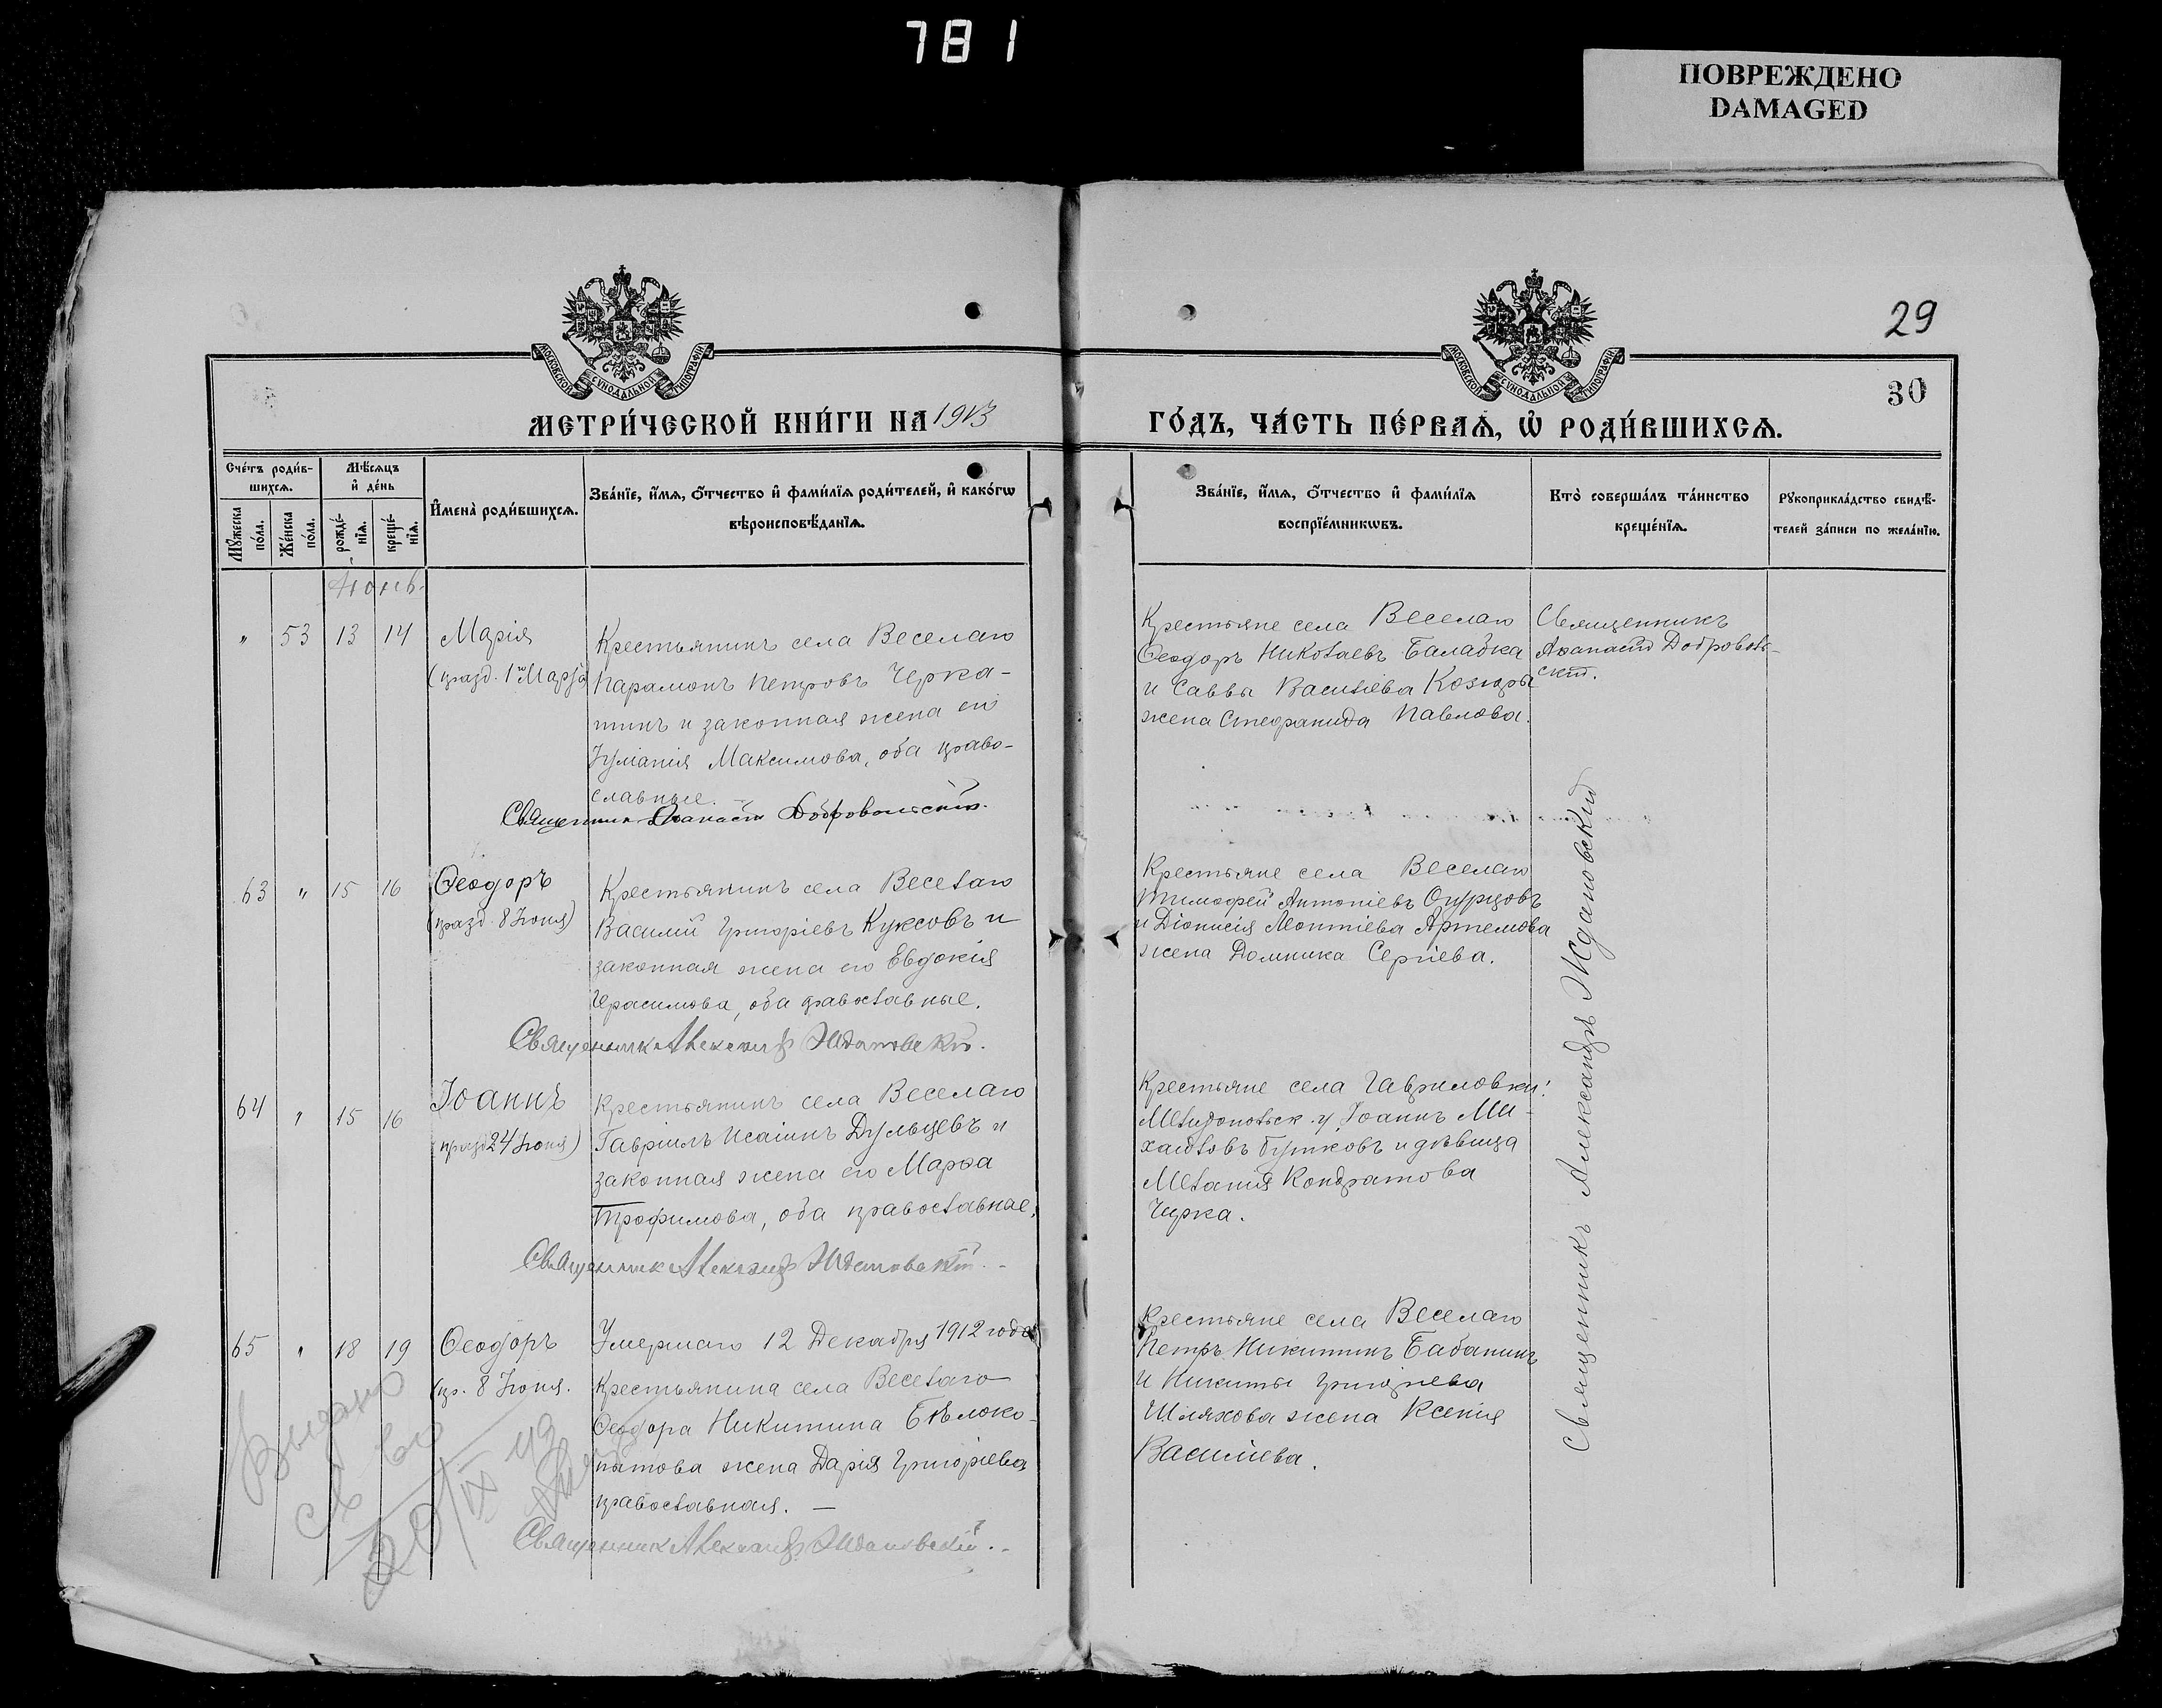 781
ПОВРЕЖДЕНО
DAMAGED
29
30
МОСКОВСКОЙ СУНОДАЛЬНОЙ ТИПОГРАФИИ
МОСКОВСКОЙ СУНОДАЛЬНОЙ ТИПОГРАФИИ
МЕТРИ́ЧЕСКОЙ КНИ́ГИ НА 1913
ГО́ДЪ, ЧА́СТЬ ПЕ́РВАѦ, Ѡ҆ РОДИ́ВШИХСѦ.
Сче́тъ роди́в-
шихсѧ.
Мѣ́сѧцъ
и҆ де́нь
И҆мена̀ роди́вшихсѧ.
Зва́нїе, и҆́мѧ, ѻ҆́тчество и҆ фами́лїѧ роди́телей, и҆ како́гѡ
вѣроисповѣ́данїѧ.
Мꙋ́жеска
по́ла.
Же́нска
по́ла.
рожде́-
нїѧ.
креще́-
нїѧ.
Зва́нїе, и҆́мѧ, ѻ҆́тчество и҆ фами́лїѧ
воспрїе́мникѡвъ.
Кто̀ соверша́лъ та́инство
креще́нїѧ.
Рꙋкоприкла́дство свидѣ́-
телей за́писи по жела́нїю.
Іюнь
" 53 13 14 Марія
(празд. 1го Марта)
Крестьянинъ села Веселаго
Парамонъ Петровъ Черка-
шинъ и законная жена его
Іуліанія Максимова, оба право-
славные.
Священникъ Аѳанасій Добровольскій.
Крестьяне села Веселаго
Ѳеодоръ Николаевъ Баладка
и Саввы Василіева Козюры
жена Стефанида Павлова.
Священникъ
Аѳанасій Доброволь-
скій.
63 " 15 16 Ѳеодоръ
(празд. 8 Іюня)
Крестьянинъ села Веселаго
Василій Григоріевъ Куксовъ и
законная жена его Евдокія
Герасимова, оба православные.
Священникъ Александръ Ждановскій.
Крестьяне села Веселаго
Тимофей Антоніевъ Огурцовъ
и Діонисія Леонтіева Артемова
жена Домника Сергіева.
64 " 15 16 Іоаннъ
(празд 24 Іюня)
Крестьянинъ села Веселаго
Гавріилъ Исаіинъ Дульцевъ и
законная жена его Марѳа
Трофимова, оба православные.
Священникъ Александръ Ждановскій.
Крестьяне села Гавриловки
Мелитопольск. у. Іоаннъ Ми-
хайловъ Бутковъ и дѣвица
Меланія Кондратова
Чирка.
65 " 18 19 Ѳеодоръ
(пр. 8 Іюня.
Умершаго 12 Декабря 1912 года
Крестьянина села Веселаго
Ѳеодора Никитина Бѣлоко-
пытова жена Дарія Григоріева
православная. —
Священникъ Александръ Ждановскій.
Крестьяне села Веселаго
Петръ Никитинъ Бабанинъ
и Никиты Григоріева
Шляхова жена Ксенія
Василіева.
Священникъ Александръ Ждановскій
Выдано
св во
20/IX